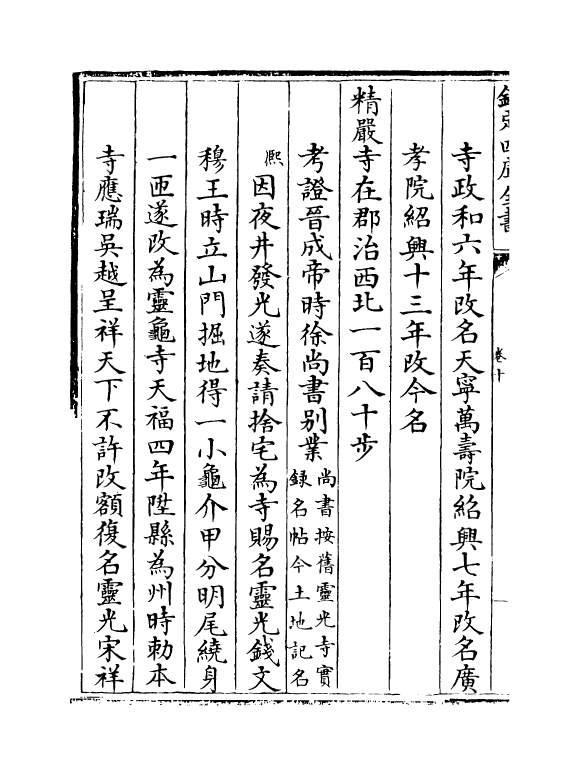 欽定四庫全書
卷十
寺政和六年改名天寧萬壽院紹興七年改名廣
孝院紹興十三年改今名
精嚴寺在郡治西北一百八十步
考證晉成帝時徐尚書别業尚書按舊靈光寺實
録名帖今土地記名
熈因夜井發光遂奏請捨宅為寺賜名靈光錢文
穆王時立山門掘地得一小龜介甲分明尾繞身
一匝遂改為靈龜寺天福四年陞縣為州時勅本
寺應瑞吳越呈祥天下不許改額復名靈光宋祥